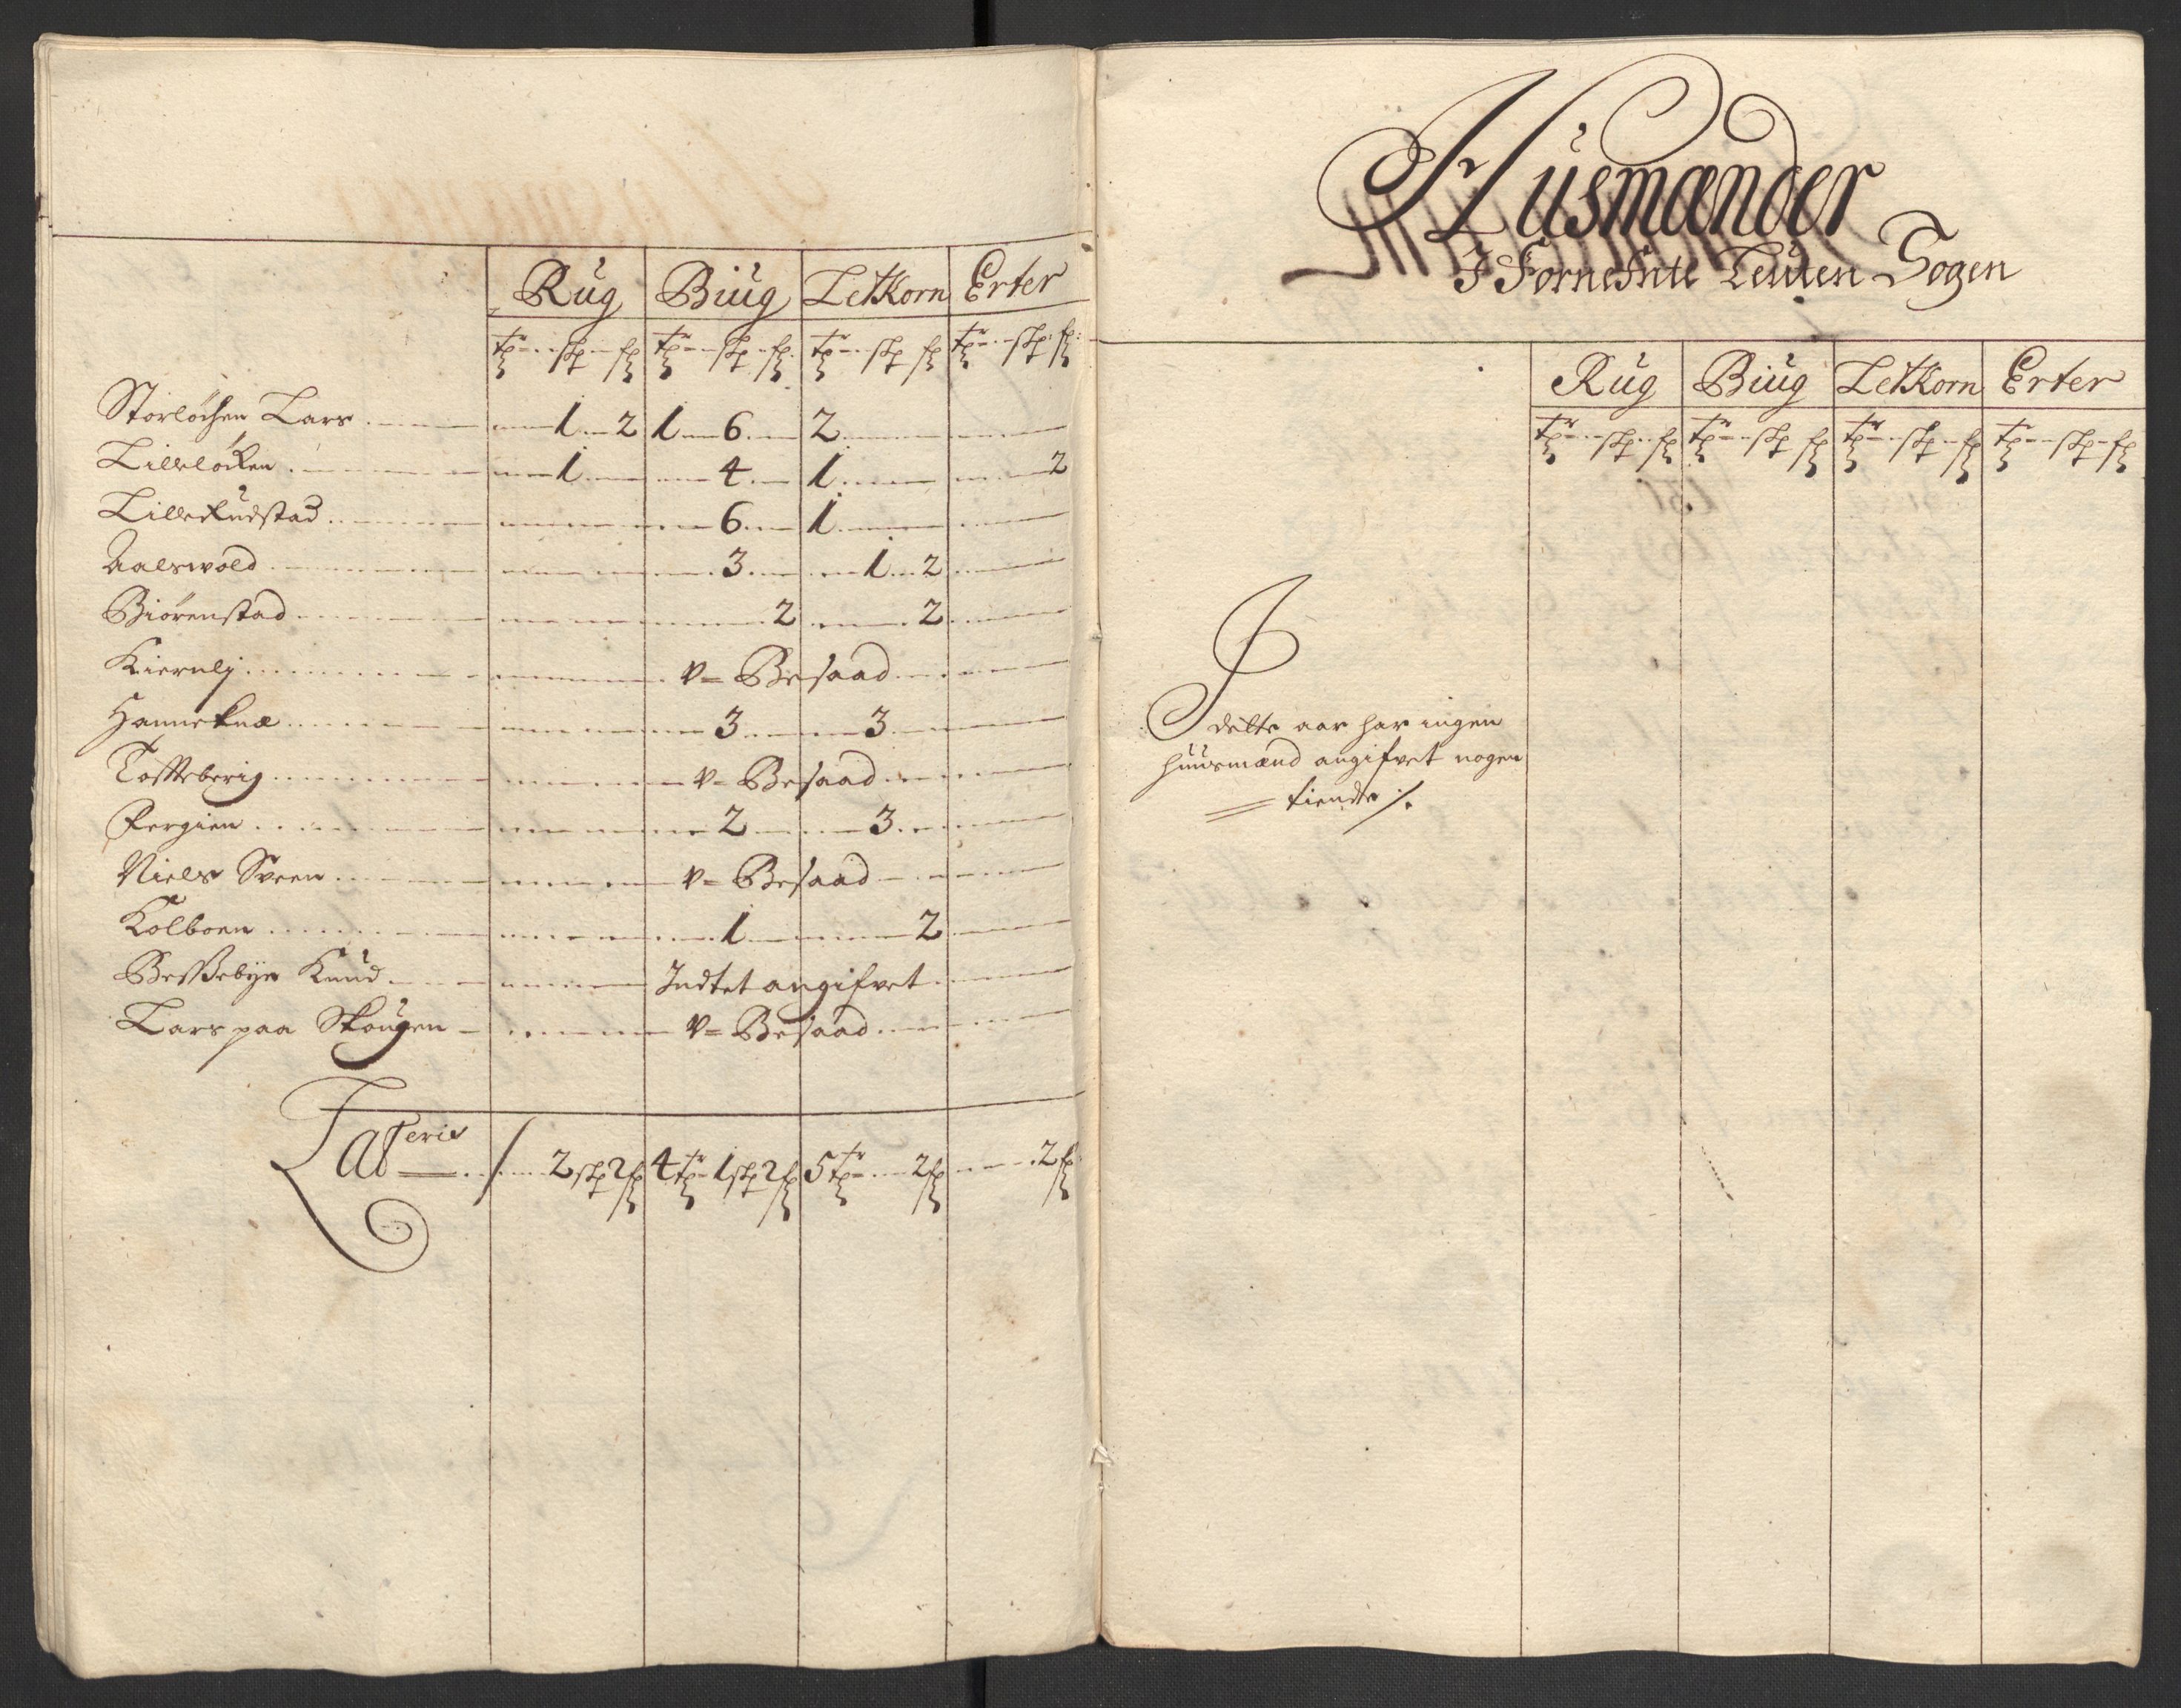 Rug Biug LetKorn Erter
tr skp fl tr skp fl tr skp fl tr skp fl
Storløchen Lars 1 2 1 6 2
Lilleløcken 1 4 1 2
Lillerudstad 6 1
Aalswold 3 1 2
Biørenstad 2 2
Kiernlj v= Besaad
Hanneknæ 3 3
Toffteberig v= Besaad
Fergien 2 3
Niels Sveen v= Besaad
Kolboen 1 2
Besßebye Knud Indtet angifvet
Lars paa Skougen v= Besaad
Lateris / 2 skp 2 fl 4 tr 1 skp 2 fl 5 tr 2 fl 2 fl
Husmænder
I Fornefnte Leuten Sogen
Rug Biug LetKorn Erter
tr skp fl tr skp fl tr skp fl tr skp fl
I dette aar har ingen
huusmænd angifvet nogen
tiende ⁒